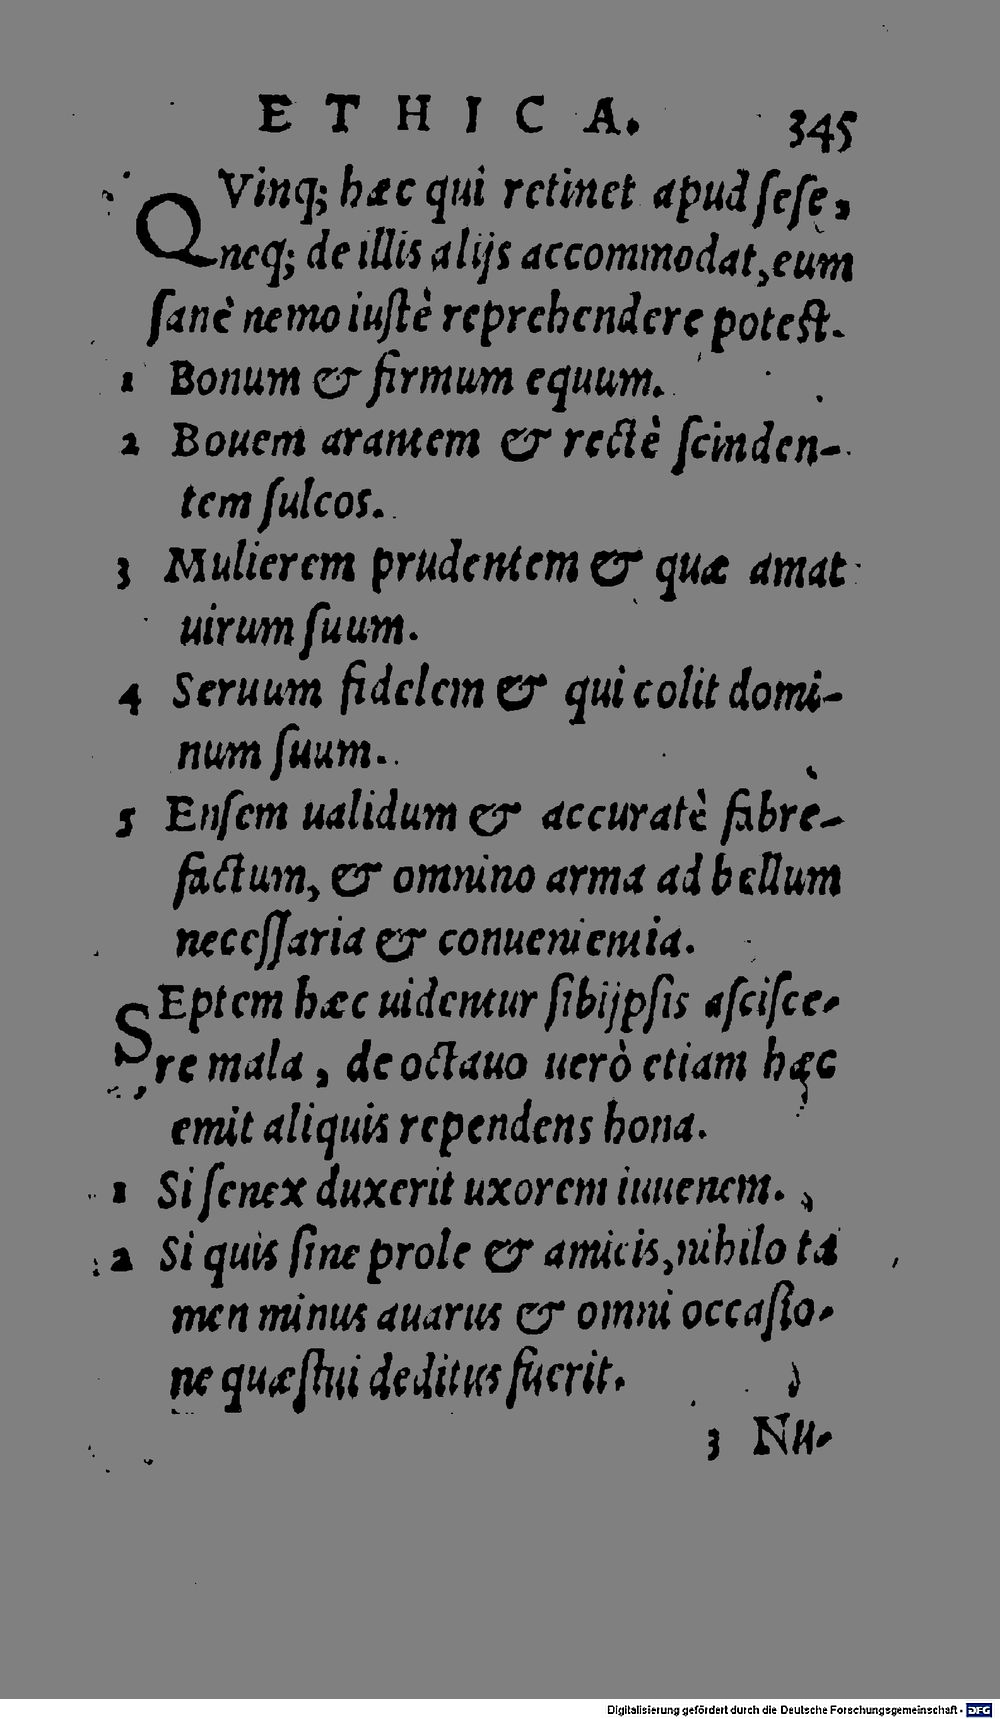 ETHICA. 345
QVinq; hæc qui retinet apud ſeſe,
neq; de illis alijs accommodat, eum
ſanè nemo iuſtè reprehendere poteſt.
1 Bonum & firmum equum.
2 Bouem arantem & rectè ſcinden-
tem ſulcos.
3 Mulierem prudentem & quæ amat
uirum ſuum.
4 Seruum fidelem & qui colit domi-
num ſuum.
5 Enſem ualidum & accuratè fabre-
factum, & omnino arma ad bellum
neceſſaria & conuenientia.
SEptem hæc uidentur ſibijpſis aſciſce-
re mala, de octauo uerò etiam hæc
emit aliquis rependens bona.
1 Si ſenex duxerit uxorem iuuenem.
2 Si quis ſine prole & amicis, nihilo ta
men minus auarus & omni occaſio-
ne quæſtui deditus fuerit.
3 Nu-
Digitalisierung gefördert durch die Deutsche Forschungsgemeinschaft - DFG